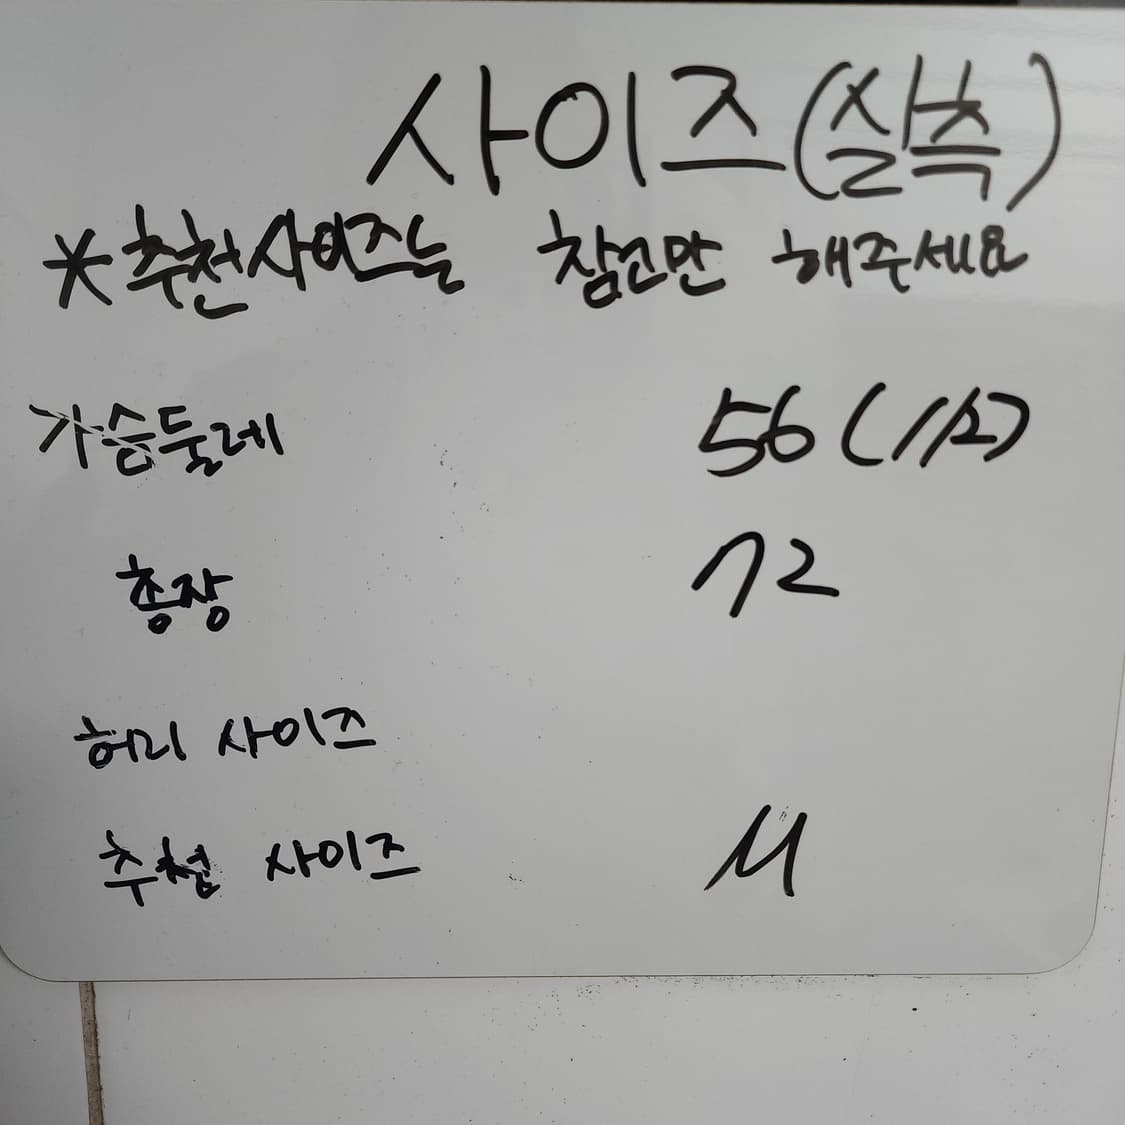 사이즈(실측)
*추천사이즈는 참고만 해주세요
가슴둘레 56(1/2)
총장 72
허리 사이즈
추천 사이즈 M